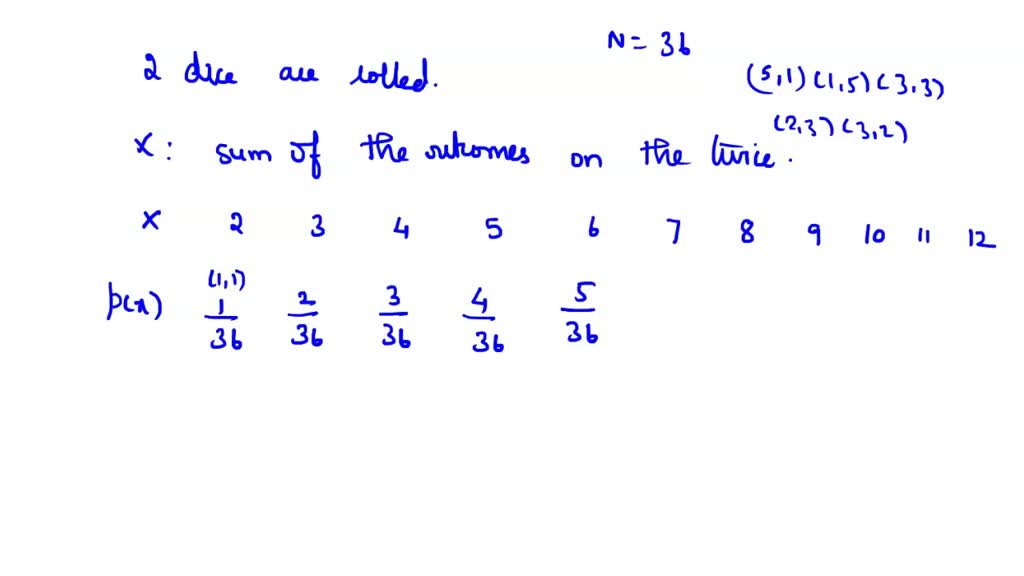 2 dice are rolled.
N = 36
(5,1) (1,5) (3,3)
(2,3) (3,2)
X : sum of the outcomes on the twice.
X 2 3 4 5 6 7 8 9 10 11 12
(1,1)
p(x) 1/36 2/36 3/36 4/36 5/36